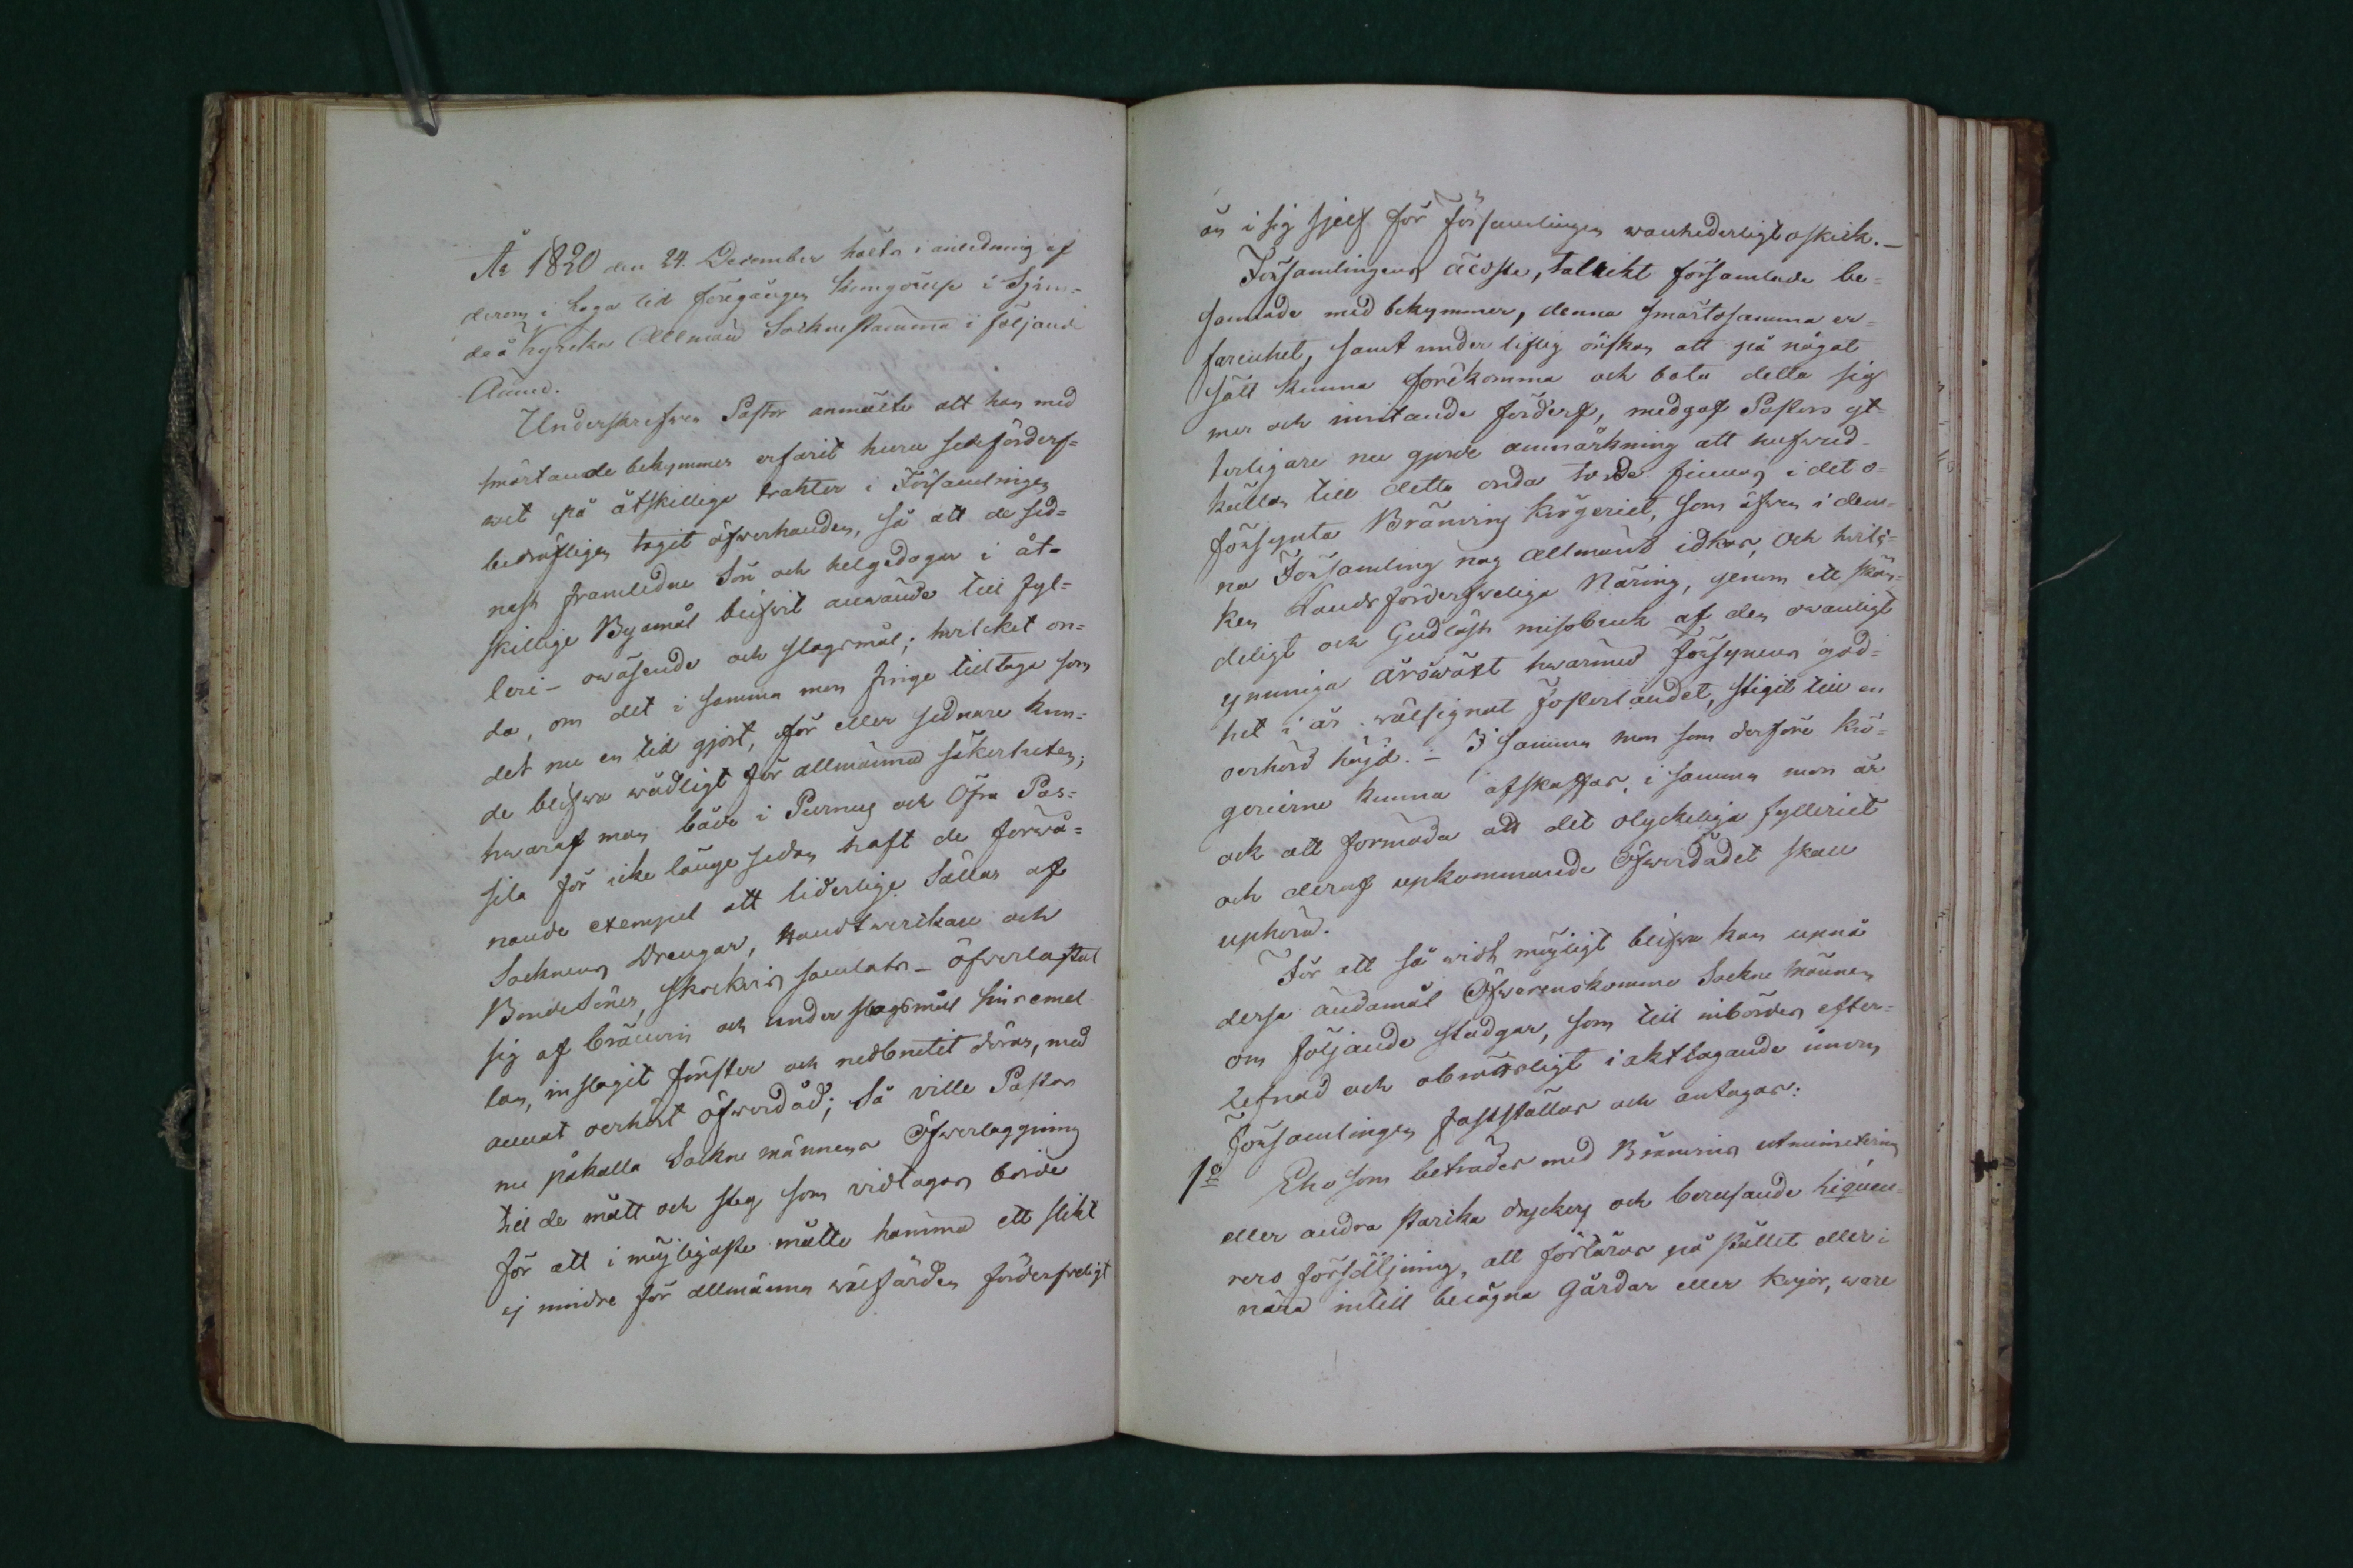 År 1820 den 24. December hölts i anledning af
derom i laga tid föregången kungörelse i Hjerne=
deå Kyrcka Allmän Sockne stämma i följande
Ämne.
Underskrefven Pastor anmälte att han med
smärtande bekymmer erfarit huru sedeförderf=
vet på åtskillige trakter i Församlingen
bedröfligen tagit öfverhanden, så att de sed=
nast framledne Sön och helgedagar i åt=
skillige Byamål blifwit använde till fyl=
leri- oväsende och slagsmål; hvilcket on=
da, om det i samma mon finge tilltaga som
det nu en tid gjort, för eller sednare kun=
de blifva vådligt för allmänna säkerheten;
hvaraf man både i Purnuj och Öfra Pas=
sila för icke länge sedan haft de förvå=
nande exempel att liderlige Sällar af
Socknens Drengar, Handtverikare och
Bondesöner, skockvis samlats - öfverlastat
sig af bränvin och under slagsmål sins emel
lan, inslagit fönster och nedbrutit dörar, med
annat oerhört öfverdåd; Så ville Pastor
nu påkalla Sockne männens Öfverläggning
till de mått och steg som vidtagas borde
för att i möjligaste måtto hämma ett slikt
ej mindre för allmänna välfärden förderfveligt
än i sig sjelf för Församlingen vanhederligt oskick. -
Församlingens äldste, talrikt församlade be=
jamnade med bekymmer, denna smärtosamma er=
farenhet, samt under liflig önskan att på något
sätt kunna förekomma och bota detta sig
mer och mer inritande förderf, medgaf Pastors yt=
terligare nu gjorde anmärkning att hufvud=
källan till detta onda torde finnas i det o=
försynta Bränvins krögeriet, som äfven i den=
na Församling nog allmänt idkas, och hvil=
ken Landsförderfveliga Näring, genom ett skän=
deligt och Gudlöst missbruk af den ovanligt
ymniga årswäxt hvarmed Försynens god=
het i år välsignat Fosterlandet, stigit till en
oerhörd höjd. - I samma mon som derföre krö=
gerierne kunna afskaffas, i samma mon är
ock att förmoda att det olyckeliga fylleriet
och deraf upkommande Öfverdådet skall
uphöra.
För att så vidt möjligt blifva kan upnå
dessa ändamål Öfverenskomme Sockne männen
om följande stadgar, som till inbördes efter=
lefnad och obrottsligt i akttagande innom
Församlingen fastställas och antagas:
1o Eho som beträdes med Bränvins utminutering
eller andra starka dryckers och berusande liqueu=
rers försäljning, att förtäras på stället eller i
nära intill belägna gårdar eller kojor, ware